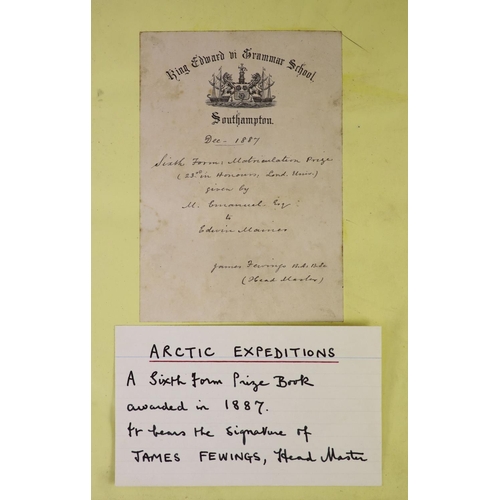 King Edward vi Grammar School,
Southampton.
Dec - 1887
Sixth Form, Matriculation Prize
(22nd in Honours, Lond. Univ.)
given by
M. Emanuel Esq
to
Edwin
James Fewings
(Head Master)
ARCTIC EXPEDITIONS
A Sixth Form Prize Book
awarded in 1887.
It bears the signature of
JAMES FEWINGS, Head Master